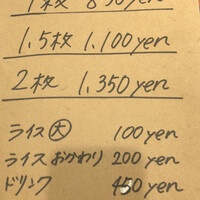 1枚 850yen
1.5枚 1.100yen
2枚 1.350yen
ライス大 100yen
ライスおかわり 200yen
ドリンク 450yen